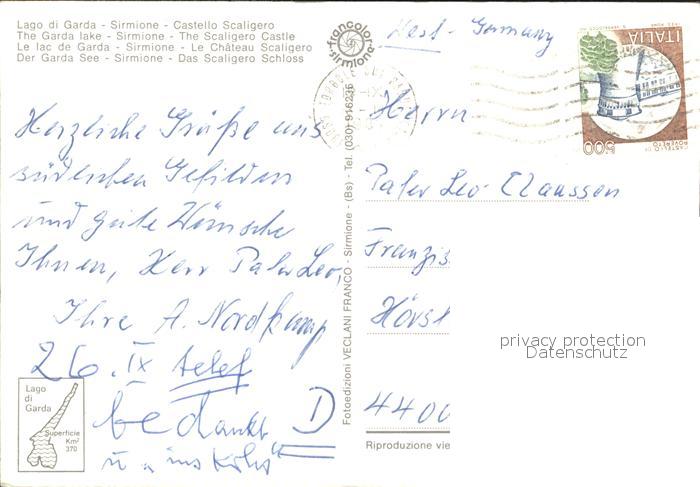 Lago di Garda - Sirmione - Castello Scaligero
The Garda lake - Sirmione - The Scaligero Castle
Le lac de Garda - Sirmione - Le Château Scaligero
Der Garda See - Sirmione - Das Scaligero Schloss
francolor
sirmione
West-Germany
ITALIA
CASTELLO DI
ROVERETO
500
Herzliche Grüße aus
südlichen Gefilden
und gute Wünsche
Ihnen, Herr Pater Leo,
Ihre A. Nordkamp
26. IX telef
bedankt
u.
Lago
di
Garda
Superficie
Km²
370
Fotoedizioni VECLANI FRANCO - Sirmione - (Bs) - Tel. (030) 916236
Herrn
Pater Leo Claassen
Franzis
Hörst
D 4400
privacy protection
Datenschutz
Riproduzione vie